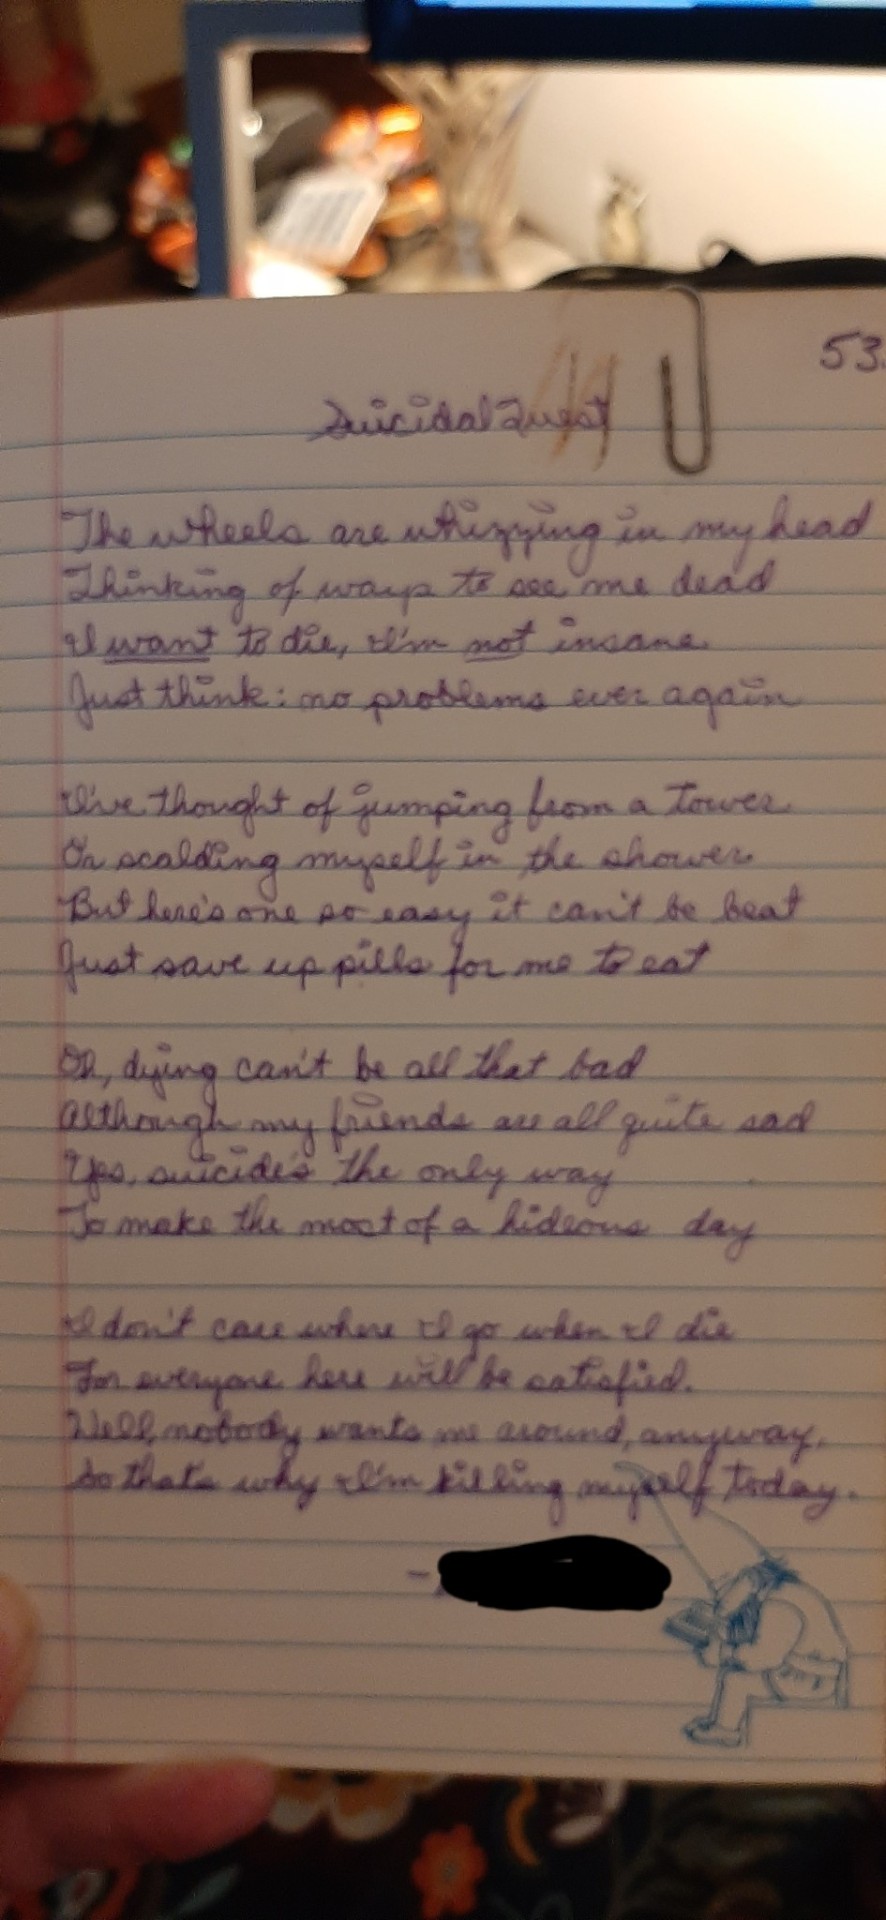 53.
Suicidal Quest
The wheels are whizzing in my head
Thinking of ways to see me dead
I want to die, I'm not insane.
Just think: no problems ever again
I've thought of jumping from a tower
Or scalding myself in the shower
But here's one so easy it can't be beat
Just save up pills for me to eat
Oh, dying can't be all that bad
Although my friends are all quite sad
Yes, suicide's the only way
To make the most of a hideous day
I don't care where I go when I die
For everyone here will be satisfied.
Well, nobody wants me around, anyway.
So that's why I'm killing myself today.